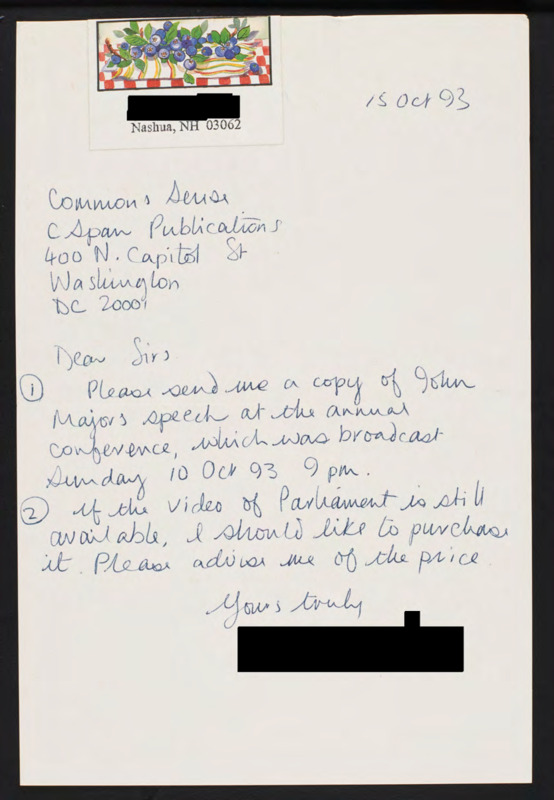 Nashua, NH 03062
15 Oct 93
Commons Sense
C Span Publications
400 N. Capitol St
Washington
DC 20001
Dear Sirs
① Please send me a copy of John
Majors speech at the annual
conference, which was broadcast
Sunday 10 Oct 93 9 pm.
② If the video of Parliament is still
available, I should like to purchase
it. Please advise me of the price
Yours truly